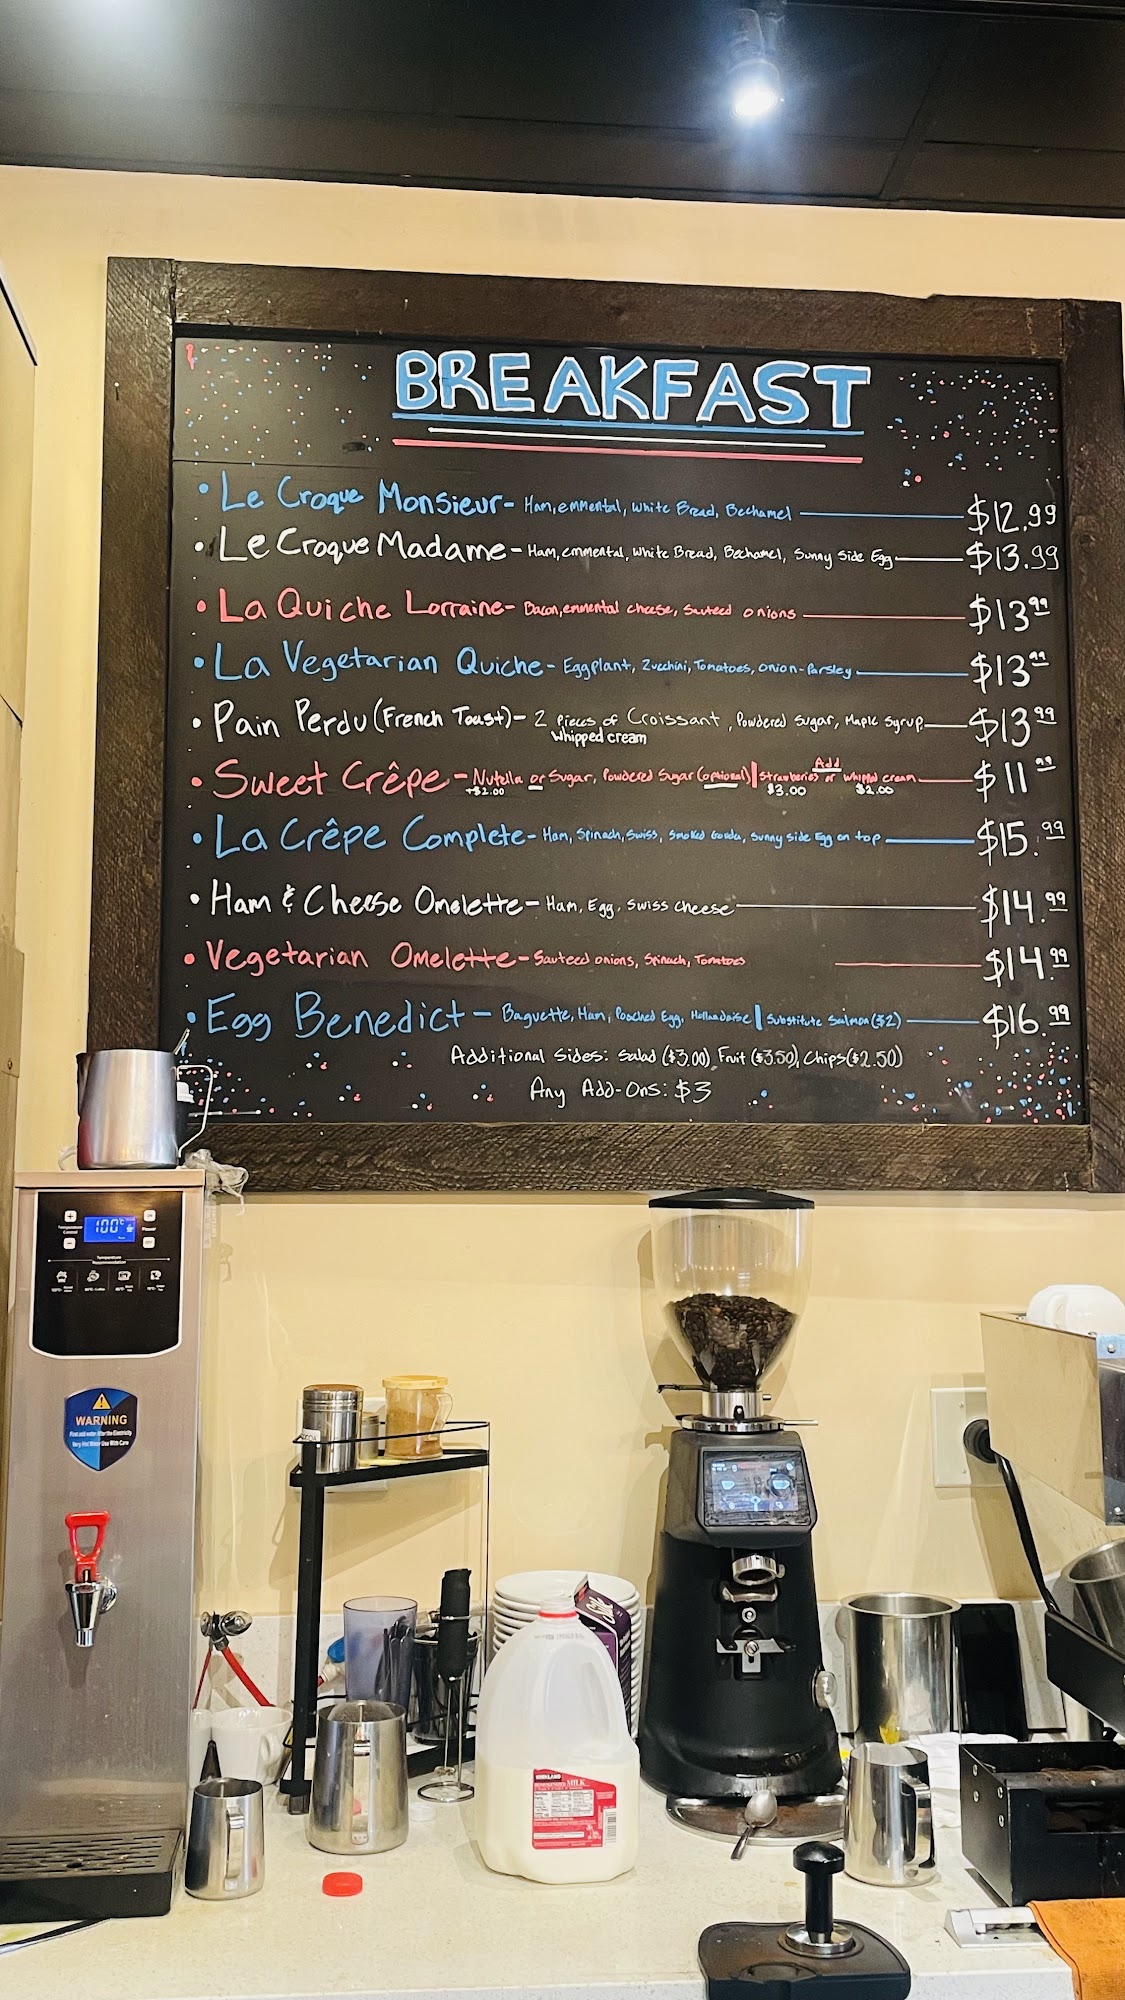 BREAKFAST
• Le Croque Monsieur- Ham, emmental, white Bread, Bechamel $12.99
• Le Croque Madame- Ham, emmental, white Bread, Bechamel, Sunny Side Egg $13.99
• La Quiche Lorraine- Bacon, emmental cheese, sauteed onions $13.99
• La Vegetarian Quiche- Eggplant, Zucchini, Tomatoes, onion-Parsley $13.99
• Pain Perdu (French Toast)- 2 Pieces of Croissant, Powdered Sugar, Maple Syrup $13.99
whipped cream
Add
• Sweet Crêpe- Nutella or Sugar, Powdered Sugar (optional) | Strawberries or whipped cream $11.99
+$2.00 $3.00 $2.00
• La Crêpe Complete- Ham, Spinach, Swiss, Smoked Gouda, Sunny side Egg on top $15.99
• Ham & Cheese Omelette- Ham, Egg, Swiss cheese $14.99
• Vegetarian Omelette- Sauteed onions, Spinach, Tomatoes $14.99
• Egg Benedict- Baguette, Ham, Poached Egg, Hollandaise | Substitute Salmon ($2) $16.99
Additional Sides: Salad ($3.00), Fruit ($3.50), Chips ($2.50)
Any Add-Ons: $3
100°C
Temperature Control
Power
Temperature
Recommendation
WARNING
Very Hot Water Use With Care
Silk
KIRKLAND
MILK